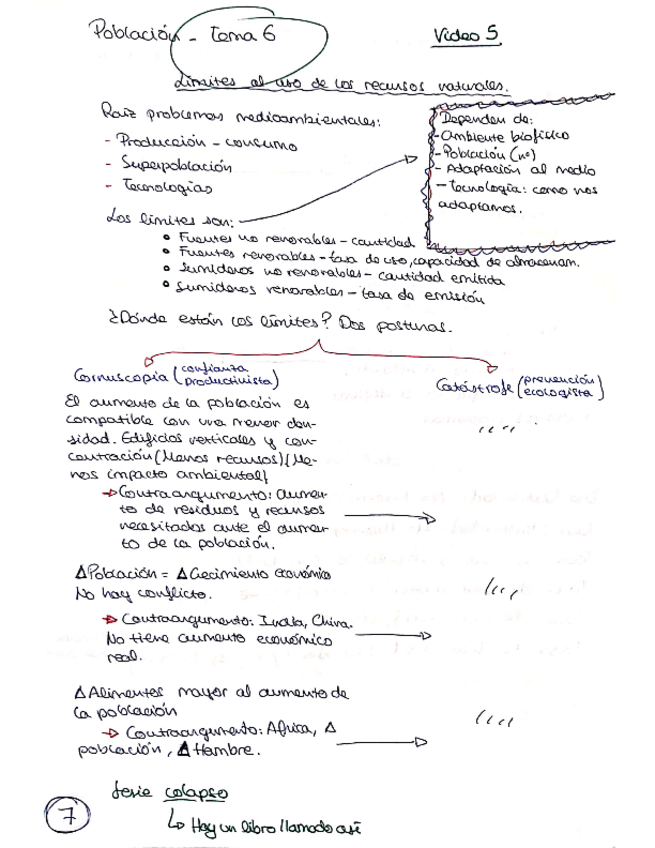 Población - Tema 6
Video 5
Límites al uso de los recursos naturales.
Raíz problemas medioambientales:
- Producción - consumo
- Superpoblación
- Tecnologías
Dependen de:
- Ambiente biofísico
- Población (nº)
- Adaptación al medio
- Tecnología: como nos
adaptamos.
Los límites son:
• Fuentes no renovables - cantidad
• Fuentes renovables - tasa de uso, capacidad de almacenam.
• Sumideros no renovables - cantidad emitida
• Sumideros renovables - tasa de emisión
¿Dónde están los límites? Dos posturas.
Cornuscopia (confianza productivista)
El aumento de la población es
compatible con una menor den-
sidad. Edificios verticales y con-
centración (Menos recursos) (Me-
nos impacto ambiental)
→ Contraargumento: aumen-
to de residuos y recursos
necesitados ante el aumen-
to de la población.
Δ Población = Δ Crecimiento económico
No hay conflicto.
→ Contraargumento: India, China.
No tiene aumento económico
real.
Δ Alimentos mayor al aumento de
la población
→ Contraargumento: Africa, Δ
población, Δ Hambre.
Catástrofe (prevención ecologista)
Serie colapso
↳ Hay un libro llamado así
7